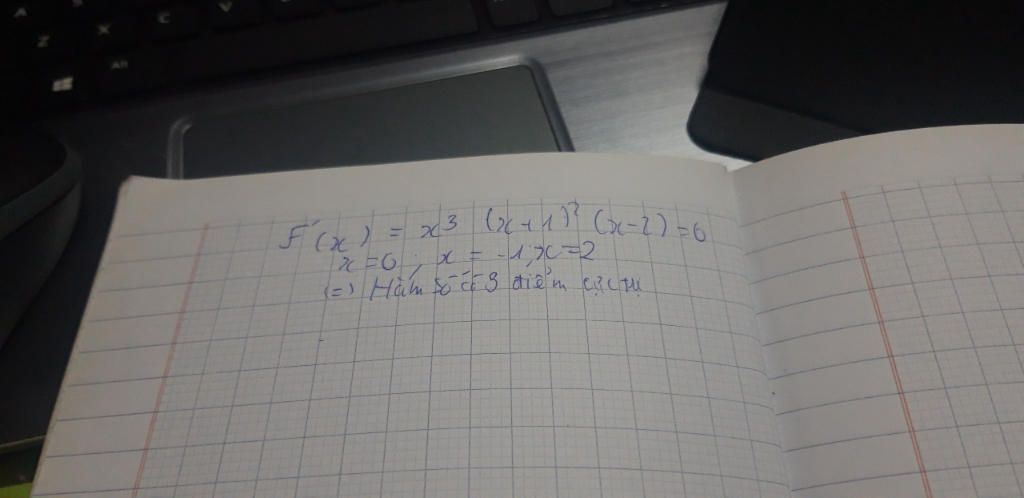 A
Z X C V
Alt
F'(x) = x³ (x+1)² (x-2) = 0
x=0 ; x = -1, x=2
(=) Hàm số có 3 điểm cực trị